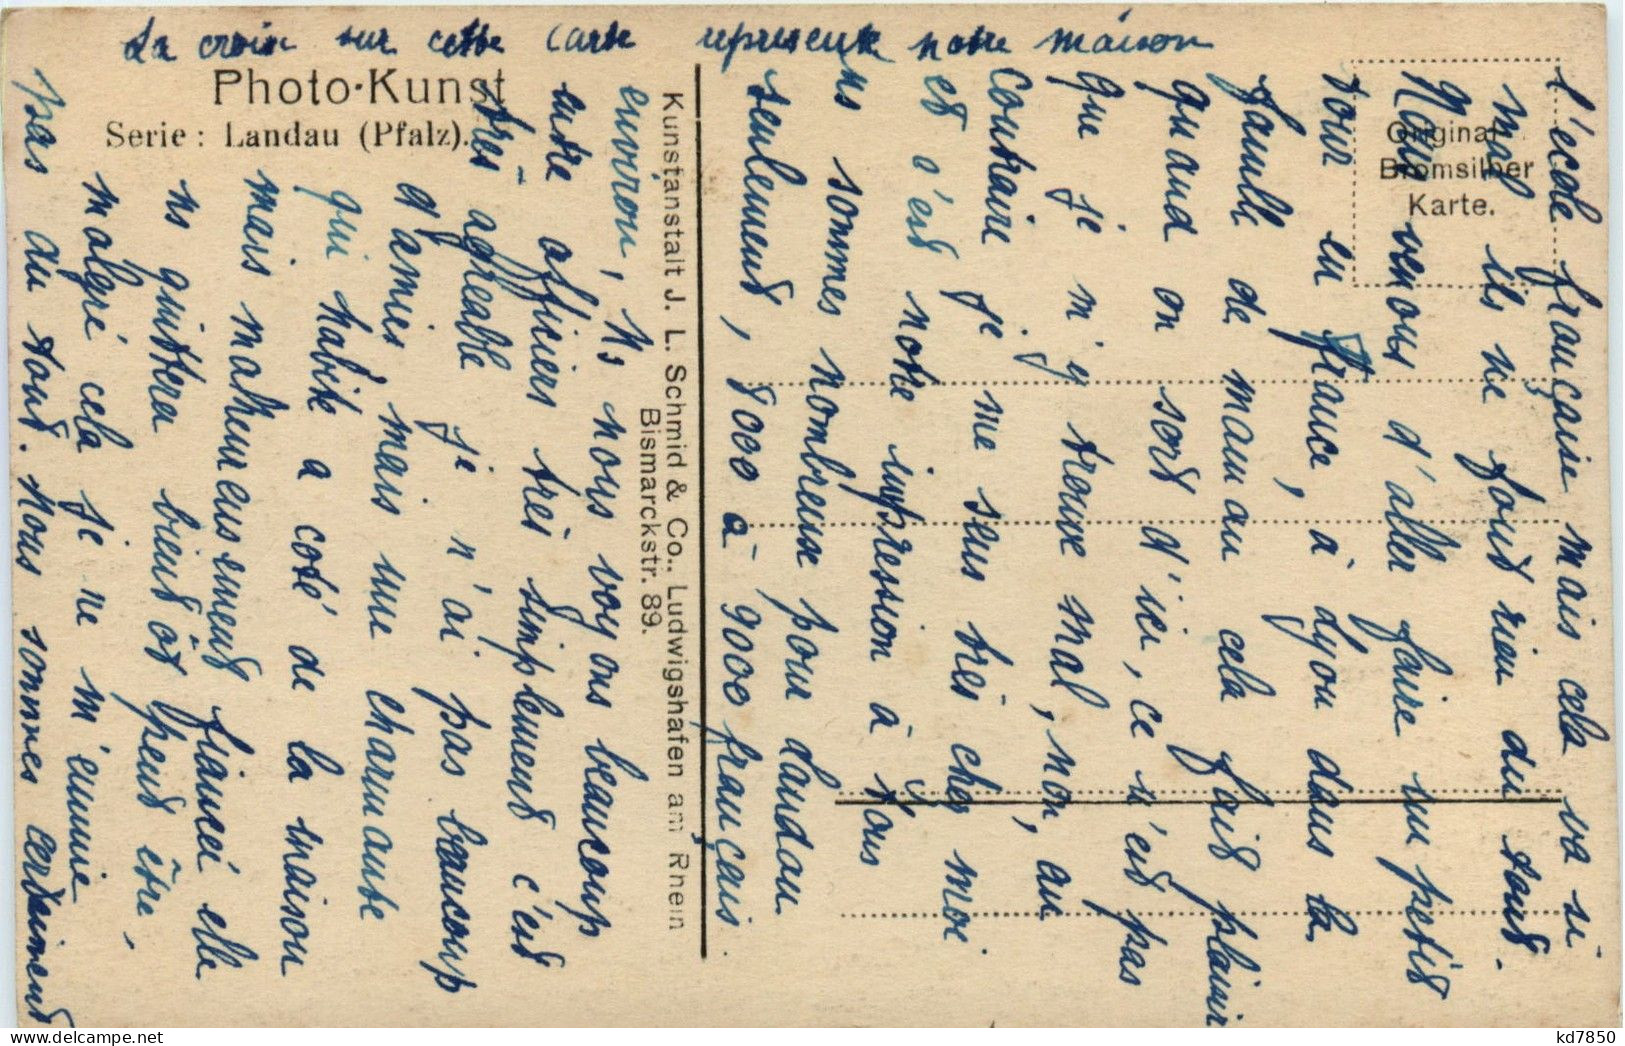 La croix sur cette carte represente notre maison
Photo-Kunst
Serie: Landau (Pfalz).
Original-
Bromsilber
Karte.
Kunstanstalt J. L. Schmid & Co., Ludwigshafen am Rhein
Bismarckstr. 89.
l'ecole française mais cela va si
mal ils ne font rien du tout.
Nous venons d'aller faire un petit
tour en France, à Lyon dans la
famille de maman cela fait plaisir
quand on sort d'ici, ce n'est pas
que je m'y trouve mal, non, au
contraire je me sens très chez moi
et c'est notre impression à tous
ns sommes nombreux pour Landau
seulement, 8000 à 9000 français.
environ, Ns nous voyons beaucoup
entre officiers très simplement c'est
très agreable je n'ai pas beaucoup
d'amies mais une charmante
qui habite a coté de la maison
mais malheureusement fiancée elle
ns quittera bientôt peut être,
malgré cela je ne m'ennuie
pas du tout. Nous sommes certainement
kd7850